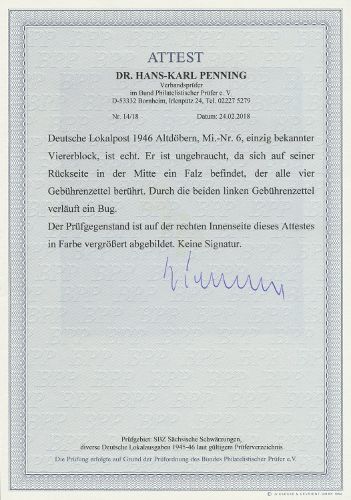 ATTEST
DR. HANS-KARL PENNING
Verbandsprüfer
im Bund Philatelistischer Prüfer e. V.
D-53332 Bornheim, Irlenpütz 24, Tel. 02227 5279
Nr. 14/18 Datum: 24.02.2018
Deutsche Lokalpost 1946 Altdöbern, Mi.-Nr. 6, einzig bekannter
Viererblock, ist echt. Er ist ungebraucht, da sich auf seiner
Rückseite in der Mitte ein Falz befindet, der alle vier
Gebührenzettel berührt. Durch die beiden linken Gebührenzettel
verläuft ein Bug.
Der Prüfgegenstand ist auf der rechten Innenseite dieses Attestes
in Farbe vergrößert abgebildet. Keine Signatur.
Prüfgebiet: SBZ Sächsische Schwärzungen,
diverse Deutsche Lokalausgaben 1945-46 laut gültigem Prüferverzeichnis
Die Prüfung erfolgte auf Grund der Prüfordnung des Bundes Philatelistischer Prüfer e.V.